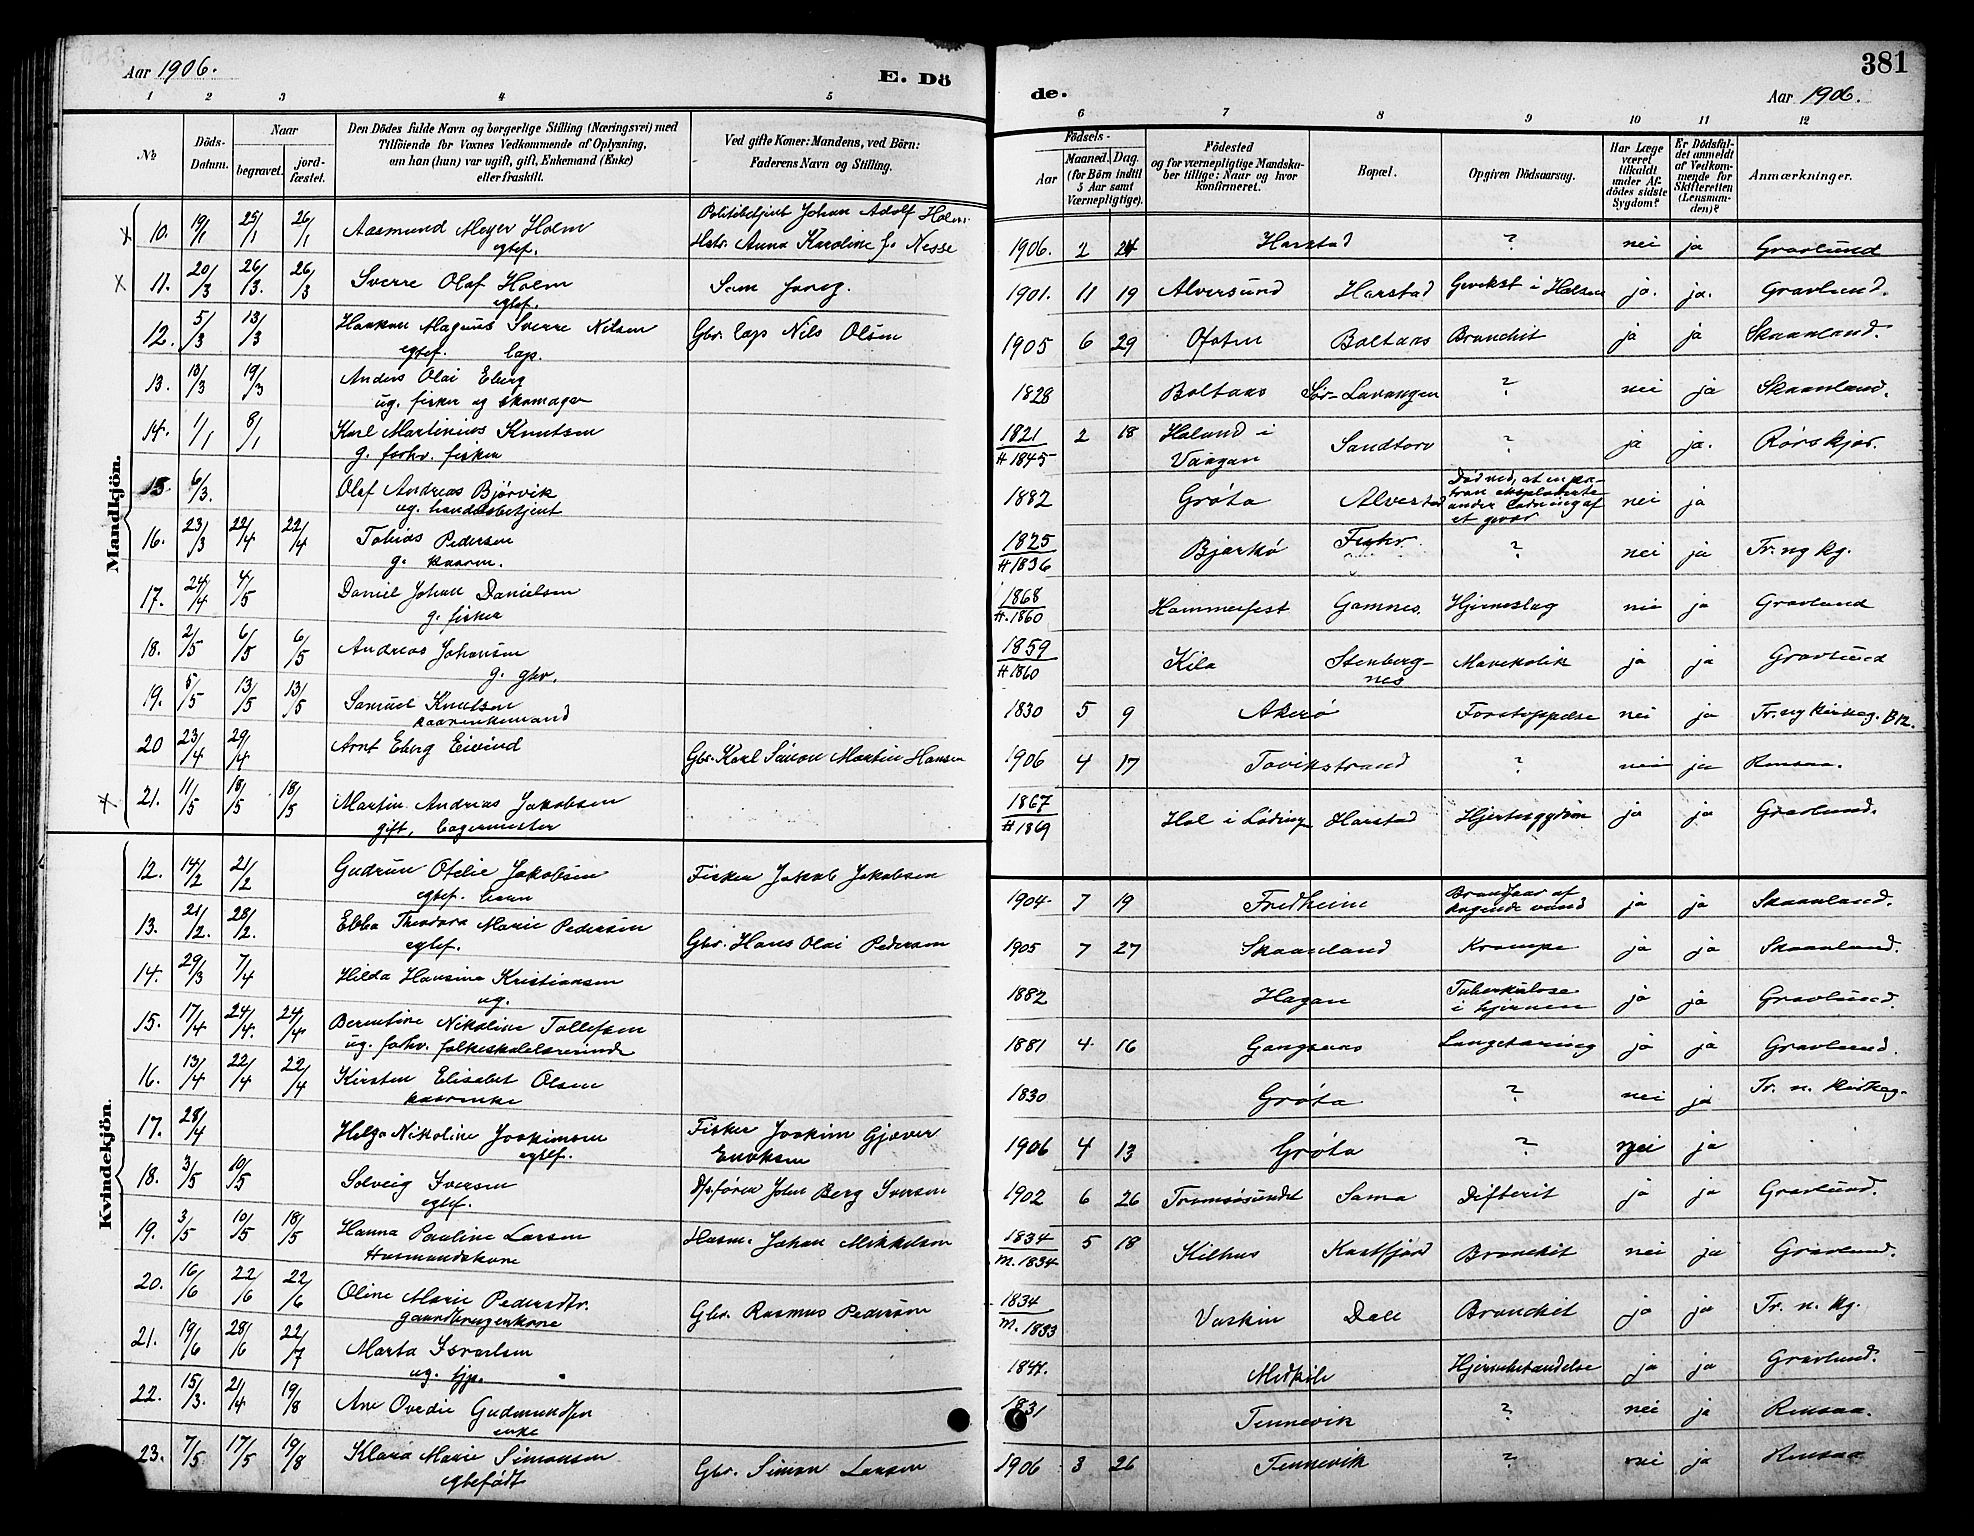 381
Aar 1906.
E. Dö
de.
Aar 1906.
1 2 3 4 5 6 7 8 9 10 11 12
No
Döds-Datum.
Naar
begravet.
jord-fæstet.
Den Dödes fulde Navn og borgerlige Stilling (Næringsvei) med
Tilföiende for Voxnes Vedkommende af Oplysning,
om han (hun) var ugift, gift, Enkemand (Enke)
eller fraskilt.
Ved gifte Koner: Mandens, ved Börn:
Faderens Navn og Stilling.
Födsels-
Aar
Maaned.
Dag.
(for Börn indtil
5 Aar samt
Værnepligtige).
Födested
og for værnepligtige Mandska-
ber tillige: Naar og hvor
konfirmeret.
Bopæl.
Opgiven Dödsaarsag.
Har Læge
været
tilkaldt
under Af-
dödes sidste
Sygdom?
Er Dödsfal-
det anmeldt
af Vedkom-
mende for
Skifteretten
(Lensman-
den)?
Anmærkninger.
Mandkjön.
10. 19/1 25/1 26/1 Aasmund Meyer Holm Politibetjent Johan Adolf Holm
egtef. Hstr. Anna Karoline f. Nesse 1906. 2 24 Harstad ? nei ja Gravlund
11. 20/3 26/3. 26/3 Sverre Olaf Holm Sam 1901. 11 19 Alversund Harstad i Halsen ja. ja. Gravlund.
egtef.
12. 5/3 13/3 Haakon Magnus Sverre Nilsen Gbr. lap Nils Olsen 1905 6 29 Ofoten Boltaas Bronchit ja ja Skaanland.
egtef. lap.
13. 13/3 19/3 Anders Olai Eberg 1828 Boltaas Sör-Lavangen ? nei ja Skaanland.
ug. fisker og skomager
14. 1/1 8/1 Karl Martinius Knutsen 1821 2 18 Holand i Sandtorv ? ja ja. Rørskjær.
g. forhv. fisker # 1845 Vaagan
15 6/3. Olaf Andreas Bjørvik 1882 Grøta Død ved, at en pa-
tron eksploderte
under ladning af
et gevær nei ja
ug. handelsbetjent
16. 23/3 22/4 22/4 Tobias Pedersen 1825 Bjarkö ? nei ja Tr. ny kg.
g. kaarm. # 1836
17. 24/4 4/5 Daniel Johan Danielsen 1868 Hammerfest Gamnes. Hjerneslag nei ja Gravlund
g. fisker #. 1860
18. 2/5 6/5 6/5 Andreas Johansen 1859 Kila Stenberg- Mavekolik ja ja Gravlund
g. gbr. # 1860 nes
19. 5/5 13/5 13/5 Samuel Knutsen 1830 5 9 Akerö Forstoppelse nei ja Tr. ny kirkeg.
kaarenkemand
20 23/4 29/4 Arnt Eberg Eivind Gbr. Karl Simon Martin Hansen 1906 4 17 Tovikstrand ? nei ja Rensaa.
21. 11/5 18/5 18/5 Martin Andreas Jakobsen 1867 Hol i Löding Harstad Hjertesygdom ja ja Gravlund.
gift, bagermester # 1869
Kvindekjön.
12. 14/2 21/2 Gudrun Otelie Jakobsen Fisker Jakob Jakobsen 1904 7 19 Fredheim Brandsaar af
kogende vand ja ja Skaanland.
egtef. barn
13. 21/2. 28/2. Ebba Theodora Marie Pedersen Gbr. Hans Olai Pedersen 1905 7 27 Skaanland Krampe ja ja Skaanland.
egtef.
14. 29/3 7/4 Hilda Hansine Kristiansen 1882 Hagan Tuberkulose
i hjernen ja ja Gravlund.
ug.
15. 17/4 24/4. 24/4. Berentine Nikoline Tollefsen 1881 4. 16 Gangsaas Lungetæring ja ja Gravlund.
ug. forhv. folkeskolelærerinde
16. 13/4 22/4 22/4 Kirsten Elisabet Olsen 1830 Grøta ? nei ja Tr. n. Kirkeg.
kaarenke
17. 28/4 Helga Nikoline Joakimsen Fisker Joakim Gjæver 1906 4 13 Grøta ? nei ja
egtef. Enoksen
18. 3/5 10/5 Solveig Iversen Dpsfører John Berg Iversen 1902 6 26 Tromsøsundet Sama Difterit ja ja Gravlund.
egtef.
19. 3/5 10/5 18/5 Hanna Pauline Larsen Husm. Johan Mikkelsen 1834 5 18 Kilhus Kastfjord Bronchit nei ja Gravlund.
Husmandskone m. 1834
20. 16/6 22/6 22/6 Oline Marie Pedersdtr. Gbr. Rasmus Pedersen 1834 Vaskin Dale Bronchit ja ja Tr. n. kg.
gaardbrugerkone m. 1833
21. 19/6 28/6 22/7 Marta Israelsen 1841. Medkile Hjernebetændelse ja ja Gravlund.
ug. tjp.
22. 15/3. 21/4 19/8 Ane Ovedie Gudmundsen 1831 Tennevik ? nei ja Rensaa.
enke
23. 7/5 17/5 19/8 Klara Marie Simonsen Gbr. Simon Larsen 1906 3 26 Tennevik ? nei ja Rensaa
egtefödt